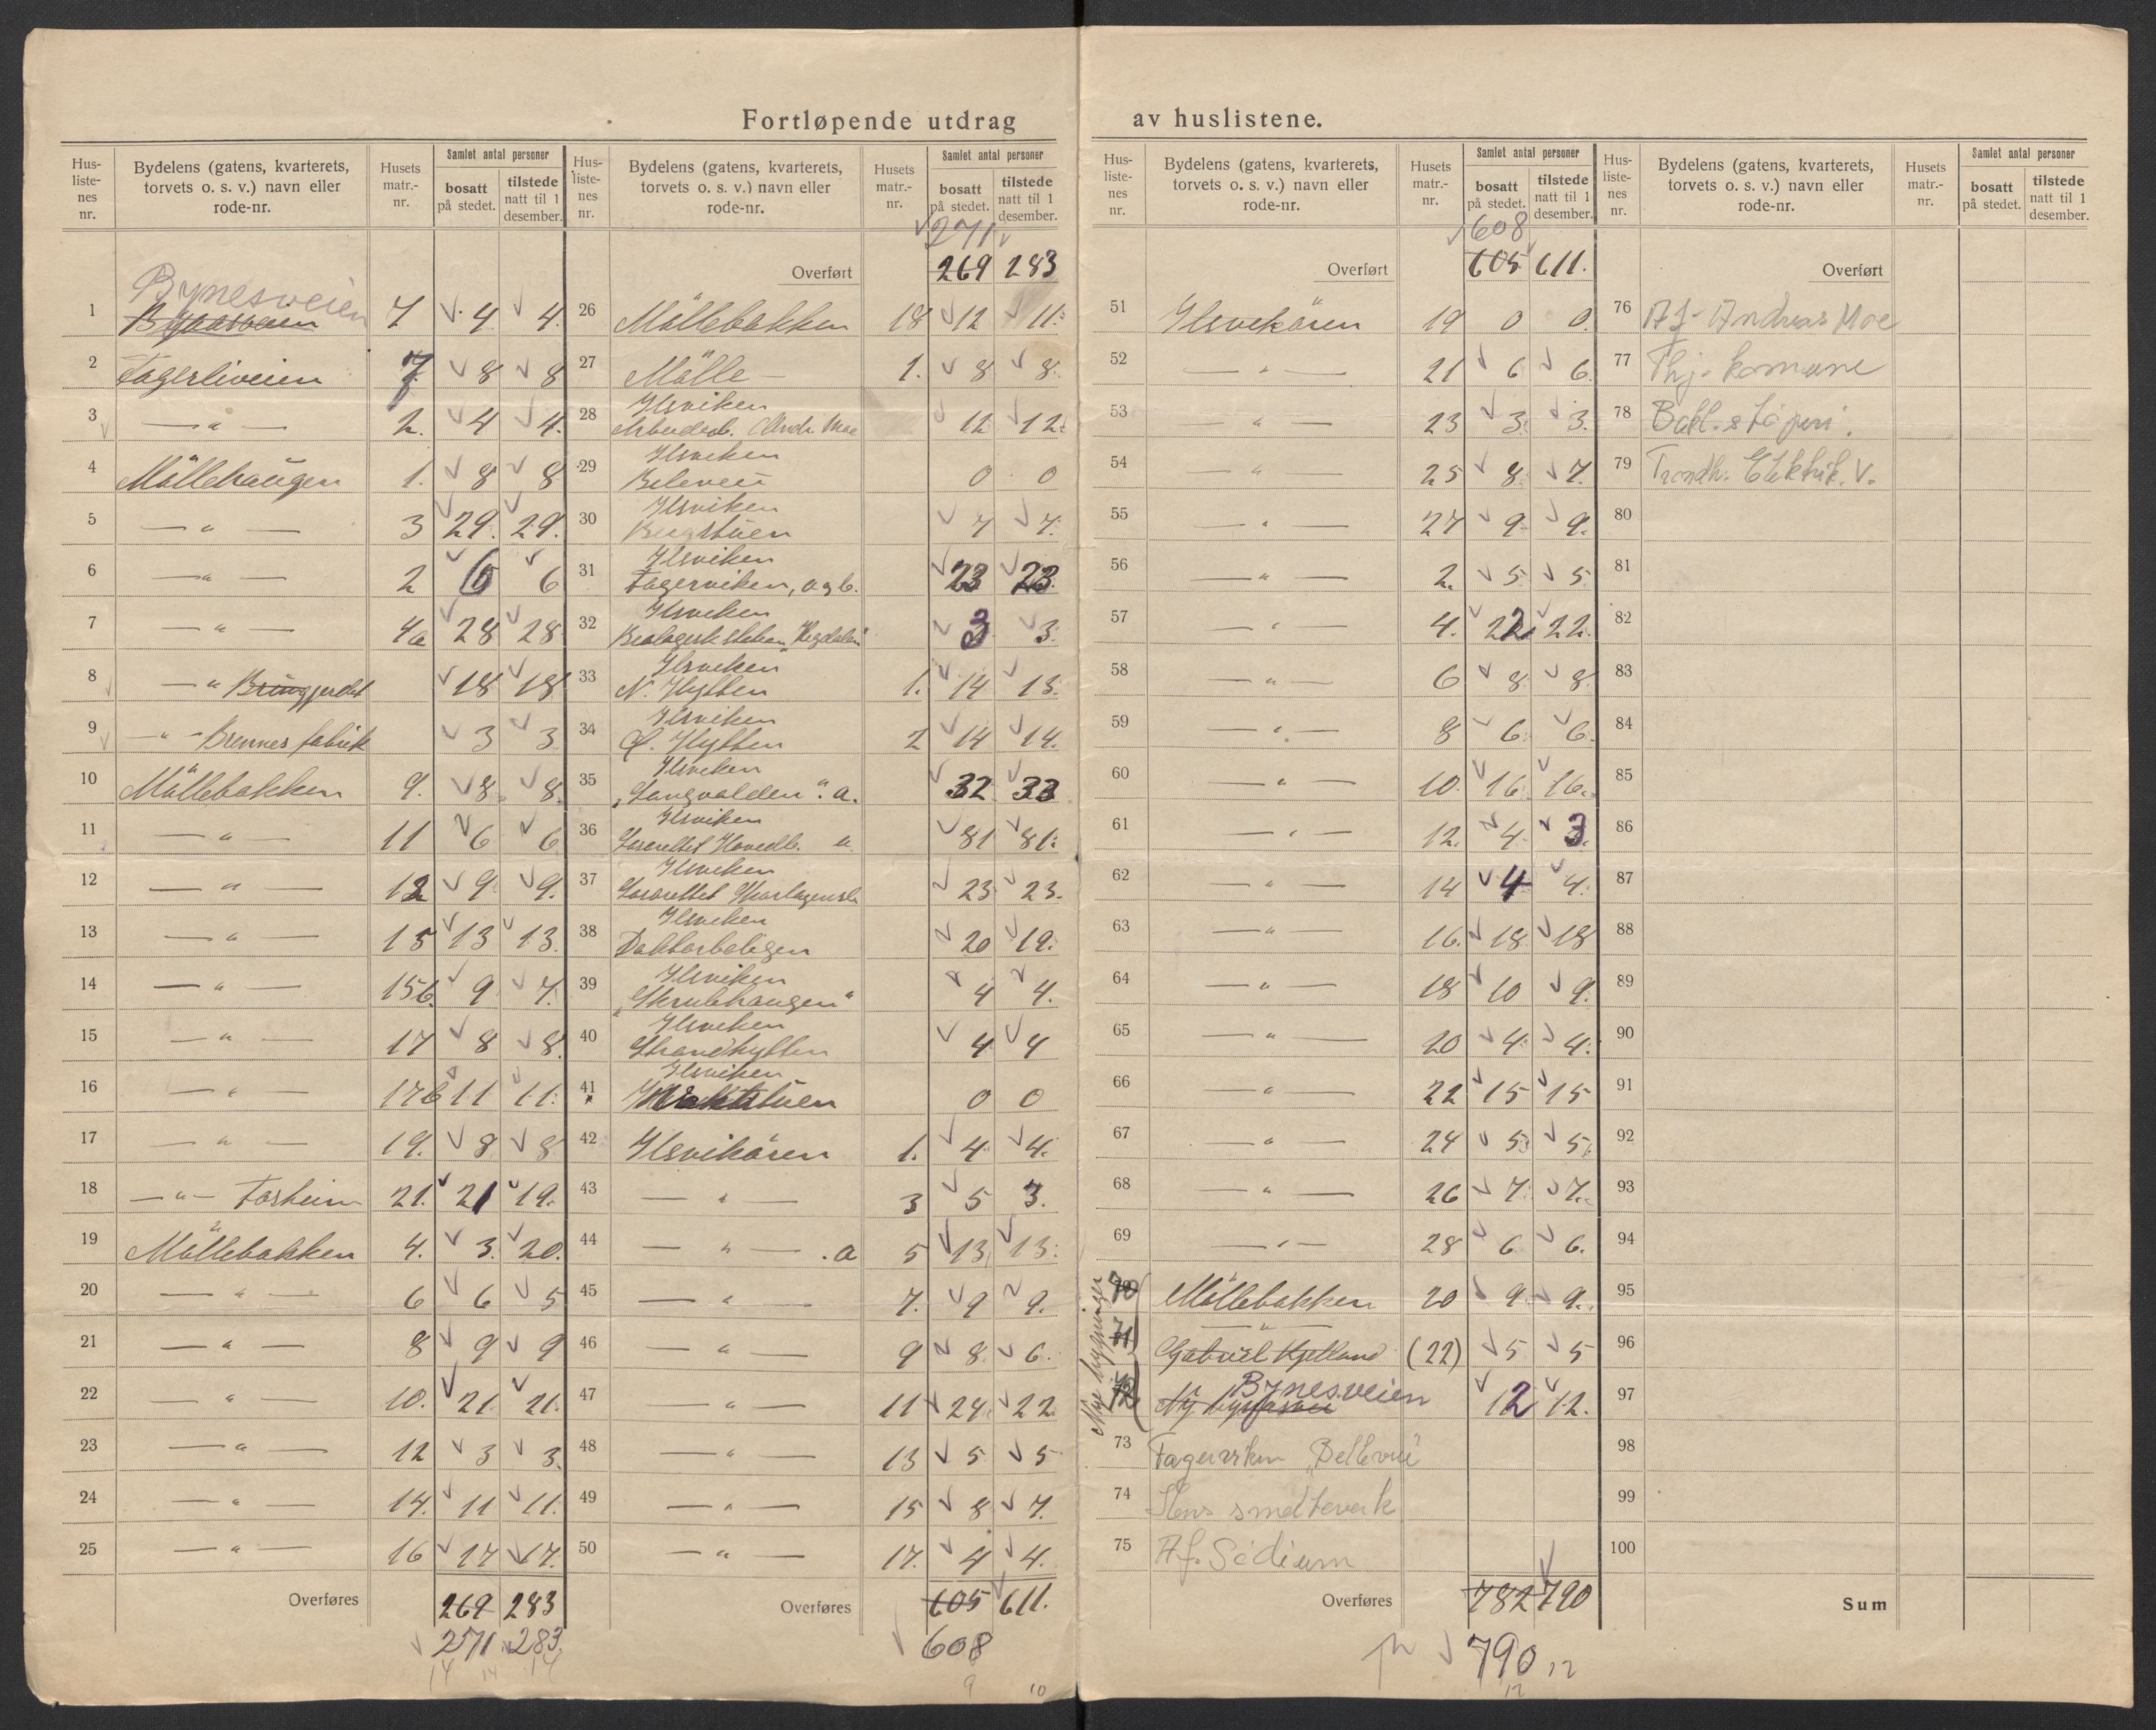 Fortløpende utdrag av huslistene.
Hus-listenes nr. | Bydelens (gatens, kvarterets, torvets o. s. v.) navn eller rode-nr. | Husets matr.-nr. | Samlet antal personer | bosatt på stedet. | tilstede natt til 1 desember.
Bynesveien
1 7 4 4.
2 Fagerliveien 7 8 8
3 — " — 2. 4 4.
4 Möllehaugen 1. 8 8
5 — " — 3 29. 29.
6 — " — 2 6 6
7 — " — 4a 28 28
8 — " 18 18
9 — " — Brennes fabrik 3 3
10 Möllebakken 9. 8. 8.
11 — " — 11 6 6
12 — " — 12 9 9.
13 — " — 15 13 13.
14 — " — 15b. 9 7.
15 — " — 17 8 8.
16 — " — 17b 11 11.
17 — " — 19. 8 8
18 — " — Forheim 21. 21 19.
19 Möllebakken 4. 3. 20.
20 — " — 6 6 5
21 — " — 8 9 9
22 — " — 10. 21. 21.
23 — " — 12 3 3.
24 — " — 14. 11 11.
25 — " — 16 17 17.
Overføres 269 283
271 283.
14 14 14
Hus-listenes nr. | Bydelens (gatens, kvarterets, torvets o. s. v.) navn eller rode-nr. | Husets matr.-nr. | Samlet antal personer | bosatt på stedet. | tilstede natt til 1 desember.
271
Overført 269 283
26 Möllebakken 18 12 11.
27 Mölle — 1. 8 8.
Ilsviken
28 Moe 12 12.
Ilsviken
29 Belevue 0 0
Ilsviken
30 7 7.
Ilsviken
31 Fagerviken, a g b. 23 23.
Ilsviken
32 3 3.
Ilsviken
33 N. Hytten 1. 14 13.
Ilsviken
34 Ö. Hytten 2 14 14.
Ilsviken
35 "Langvolden" a. 32 33
Ilsviken
36 Lasarettet Hovedb. a. 81 81.
Ilsviken
37 Lasarettet 23 23.
Ilsviken
38 Doktorboligen 20 19.
Ilsviken
39 "Skrubhaugen" 4 4.
Ilsviken
40 Strandhytten 4 4
Ilsviken
41 0 0
42 Ilsvikören 1. 4 4.
43 — " — 3 5 3.
44 — " — . a 5 13 13.
45 — " — 7. 9 9.
46 — " — 9 8 6.
47 — " — 11 24 22
48 — " — 13 5 5
49 — " — 15 8 7.
50 — " — 17. 4 4.
Overføres 605 611.
608
9 10
Hus-listenes nr. | Bydelens (gatens, kvarterets, torvets o. s. v.) navn eller rode-nr. | Husets matr.-nr. | Samlet antal personer | bosatt på stedet. | tilstede natt til 1 desember.
608
Overført 605 611.
51 Ilsvikören 19 0 0.
52 — " — 21 6 6.
53 — " — 23 3. 3.
54 — " — 25 8 7.
55 — " — 27 9 9.
56 — " — 2. 5 5.
57 — " — 4. 22 22.
58 — " — 6 8 8.
59 — " — 8 6. 6.
60 — " — 10. 16 16.
61 — " — 12. 4. 3.
62 — " — 14 4 4.
63 — " — 16. 18 18
64 — " — 18 10 9.
65 — " — 20 4. 4.
66 — " — 22 15 15
67 — " — 24 5 5.
68 — " — 26 7. 7.
69 — " — 28 6 6.
Nye bygninger
70 Möllebakken 20 9 9.
— " —
71 Gabriel Kjelland (22) 5 5
72 Bynesveien 12 12.
73 Fagerviken "Bellevue"
74 Ilens smelteverk
75 Af. Sodium
Overføres 782 790
790 12
12
Hus-listenes nr. | Bydelens (gatens, kvarterets, torvets o. s. v.) navn eller rode-nr. | Husets matr.-nr. | Samlet antal personer | bosatt på stedet. | tilstede natt til 1 desember.
Overført
76 Af. Andreas Moe
77 Thj. komune
78 Bakl. støperi.
79 Trondh. Elektrik. V.
80
81
82
83
84
85
86
87
88
89
90
91
92
93
94
95
96
97
98
99
100
Sum